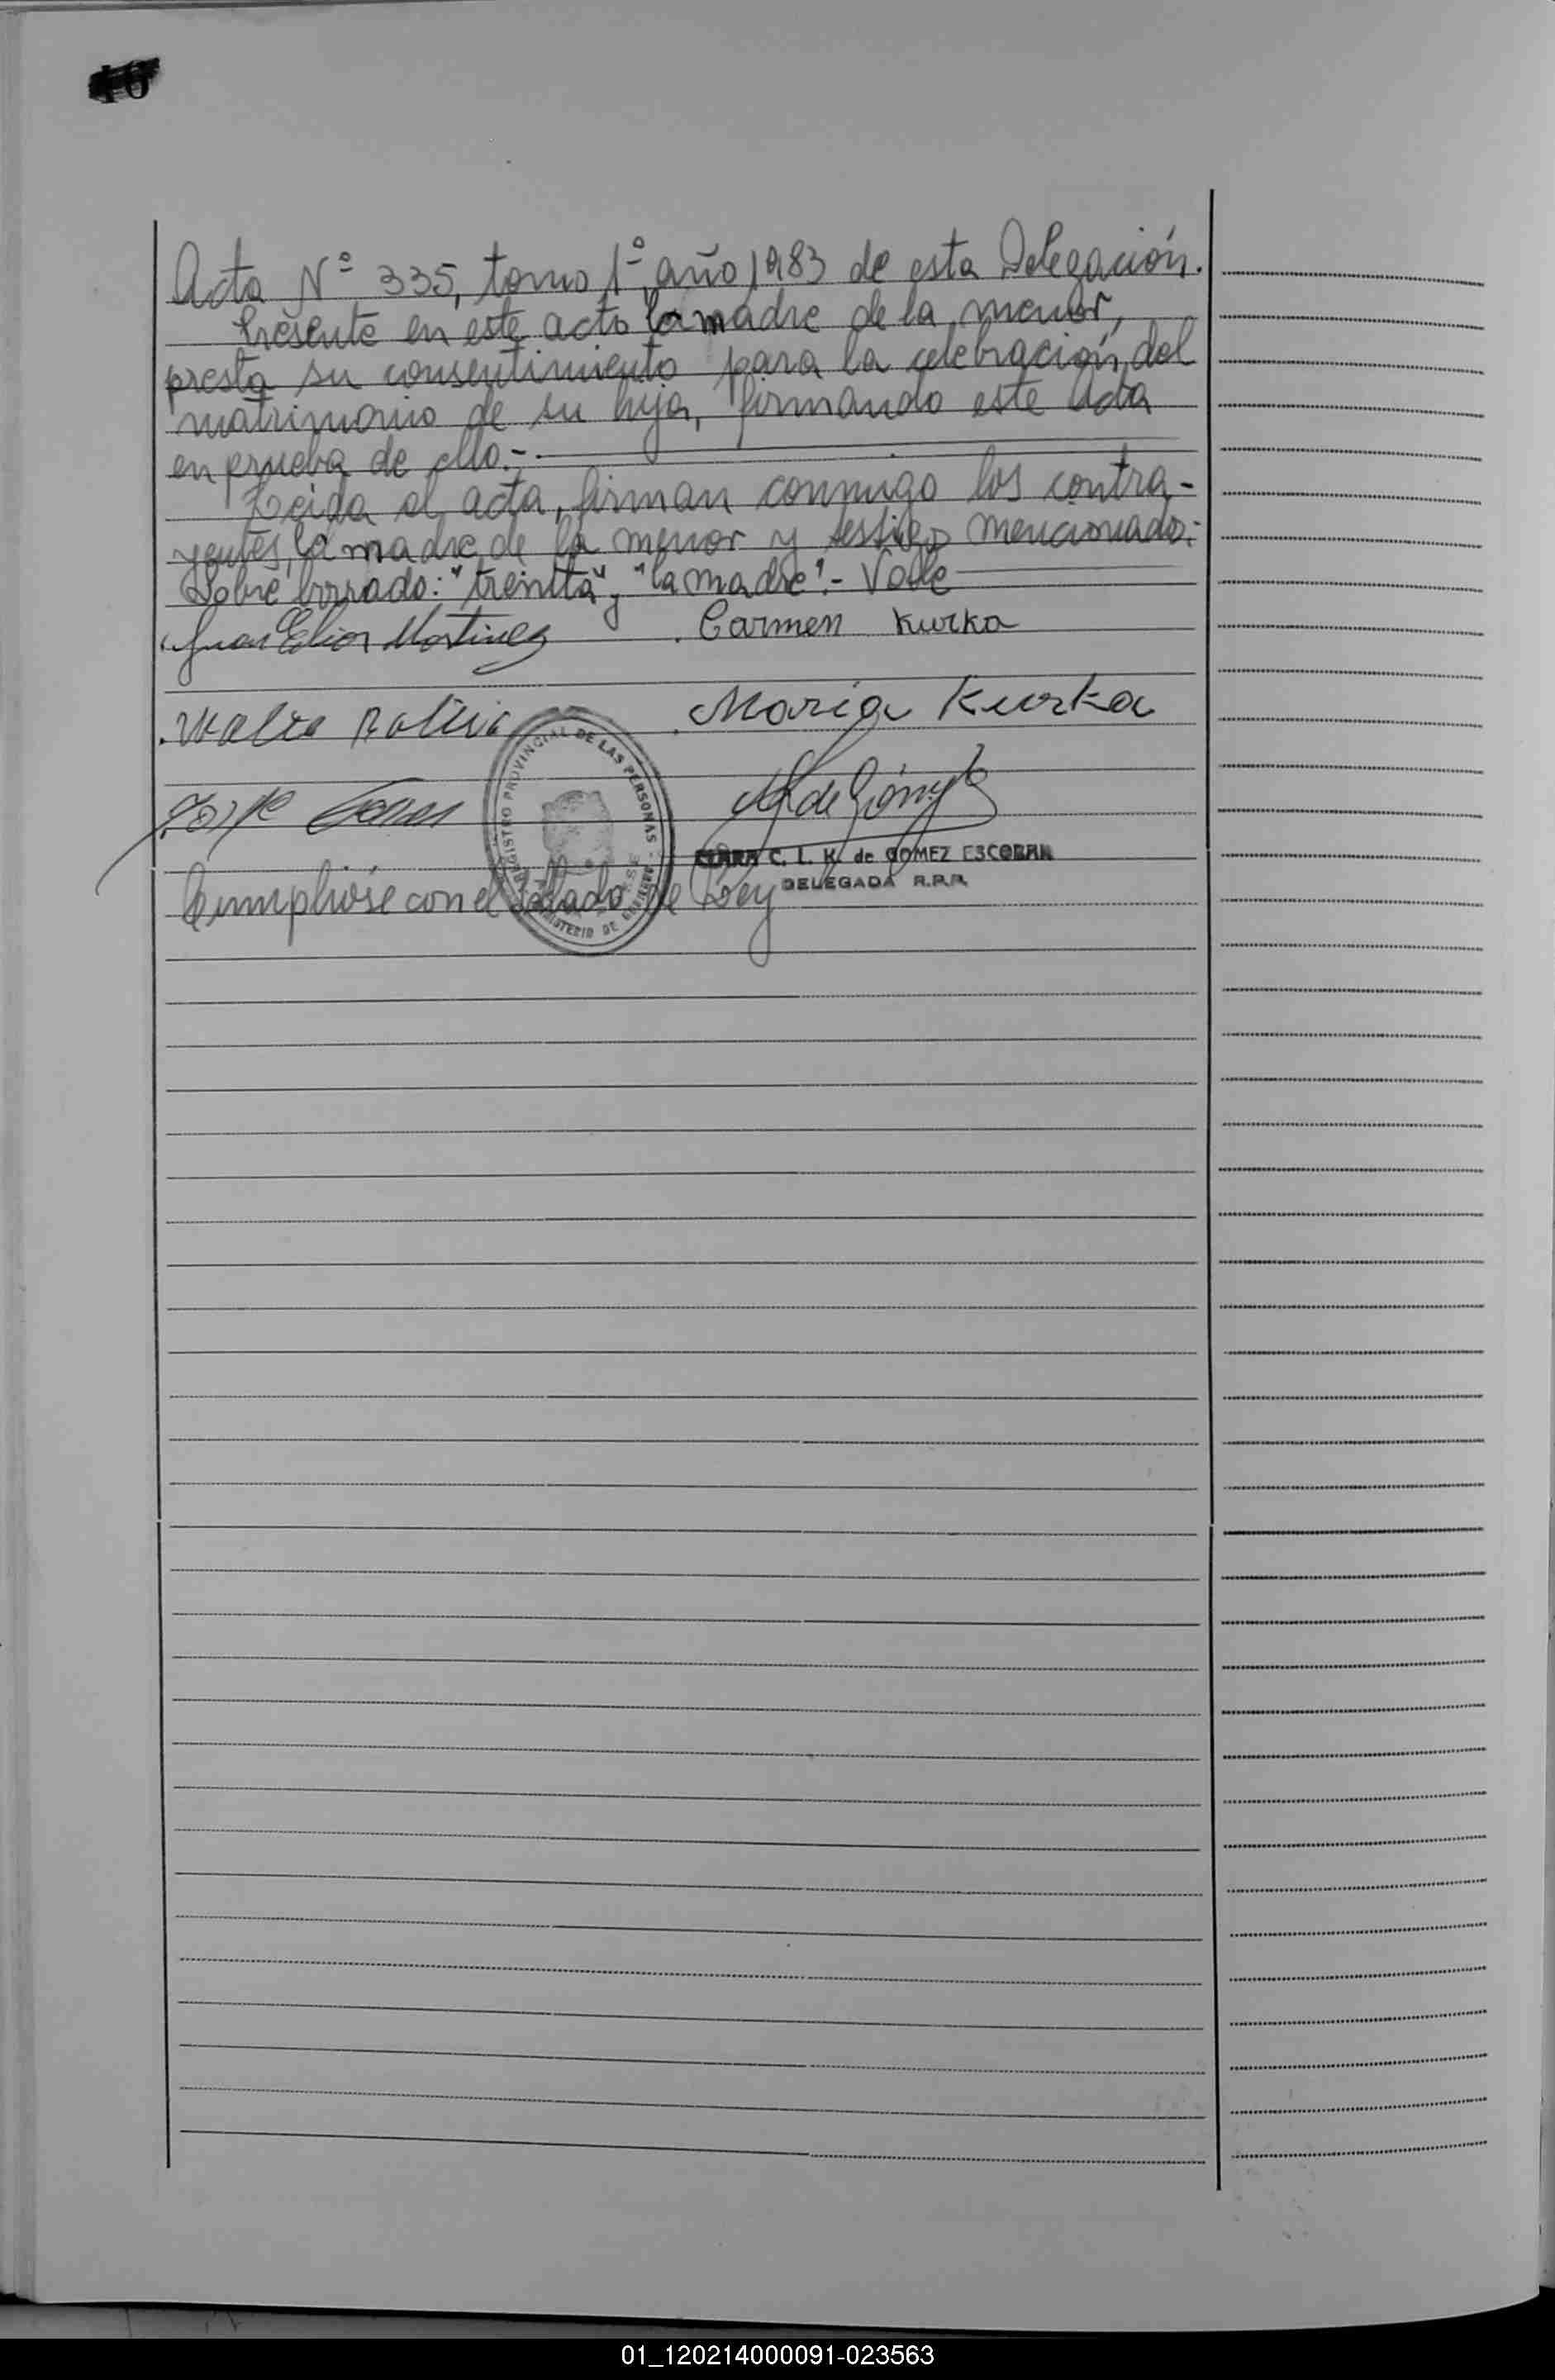 16
Acta Nº 335, tomo 1º, año 1983 de esta Delegación.
Presente en este acto la madre de la menor,
presta su consentimiento para la celebración del
matrimonio de su hija, firmando este Acta
en prueba de ello.-.
Leída el acta, firman conmigo los contra-
yentes, la madre de la menor y testigos mencionados:
Sobre borrado: "treinta" y "la madre".- Vale
Juan Martinez
Carmen Kurka
Maria Kurka
REGISTRO PROVINCIAL DE LAS PERSONAS
MINISTERIO DE
CLARA C. L. K. de GOMEZ ESCOBAR
DELEGADA R.P.P.
Cumplióse con el sellado de Ley
01_120214000091-023563